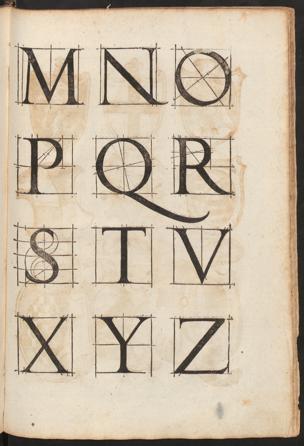 M N O
P Q R
S T V
X Y Z